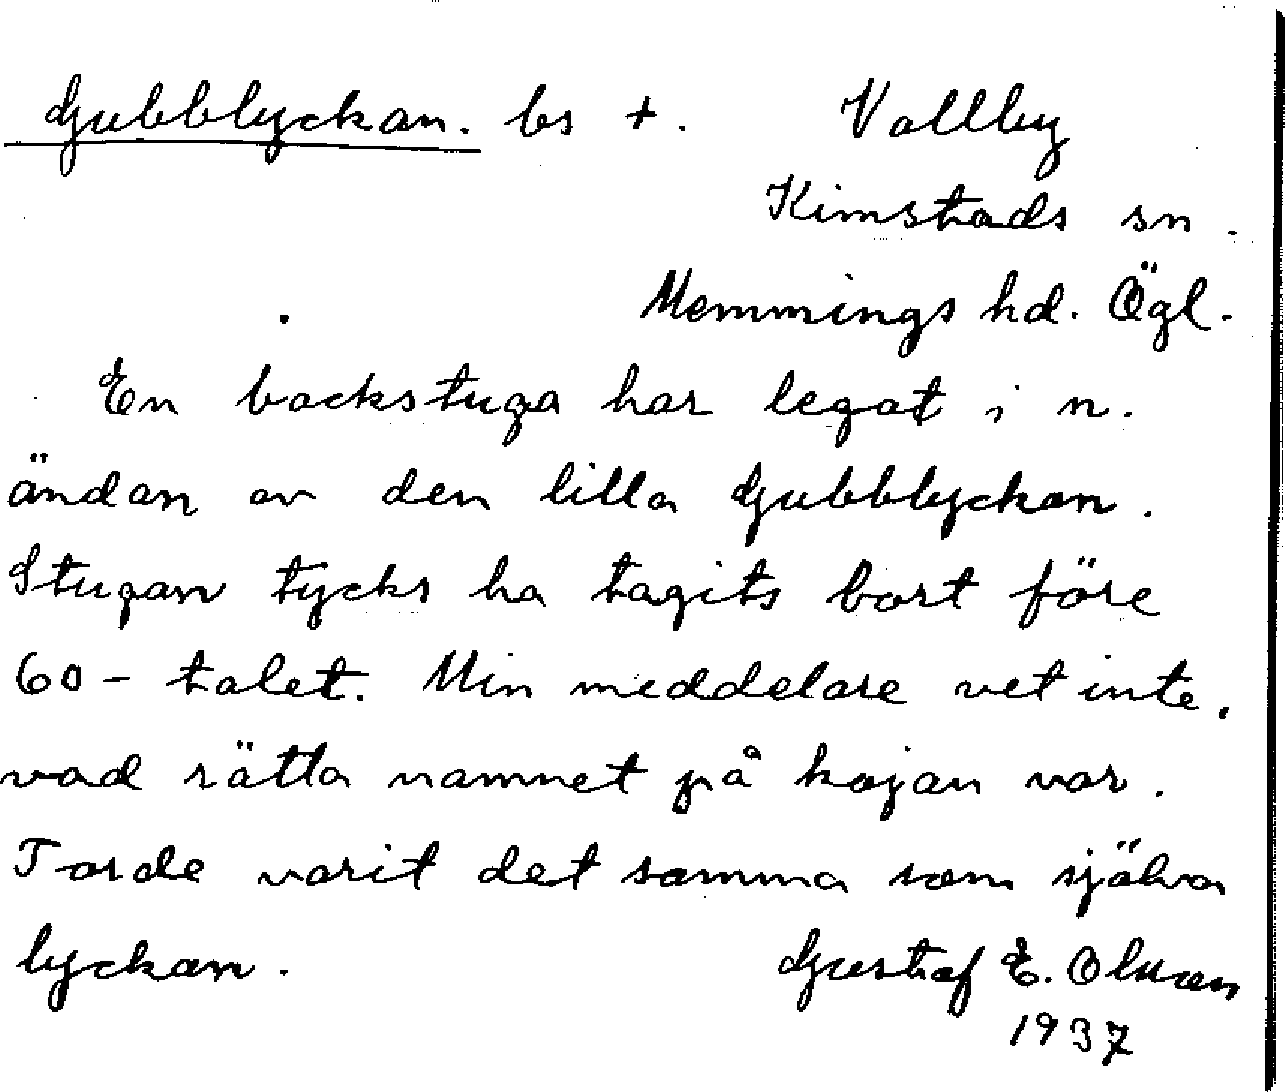 Gubblyckan. bs +. Vallby
Kimstads sn.
Memmings hd. Ögl.
En backstuga har legat i n.
ändan av den lilla Gubblyckan.
Stugan tycks ha tagits bort före
60-talet. Min meddelare vet inte,
vad rätta namnet på kojan var.
Torde varit det samma som själva
lyckan. Gustaf E. Olsson
1937